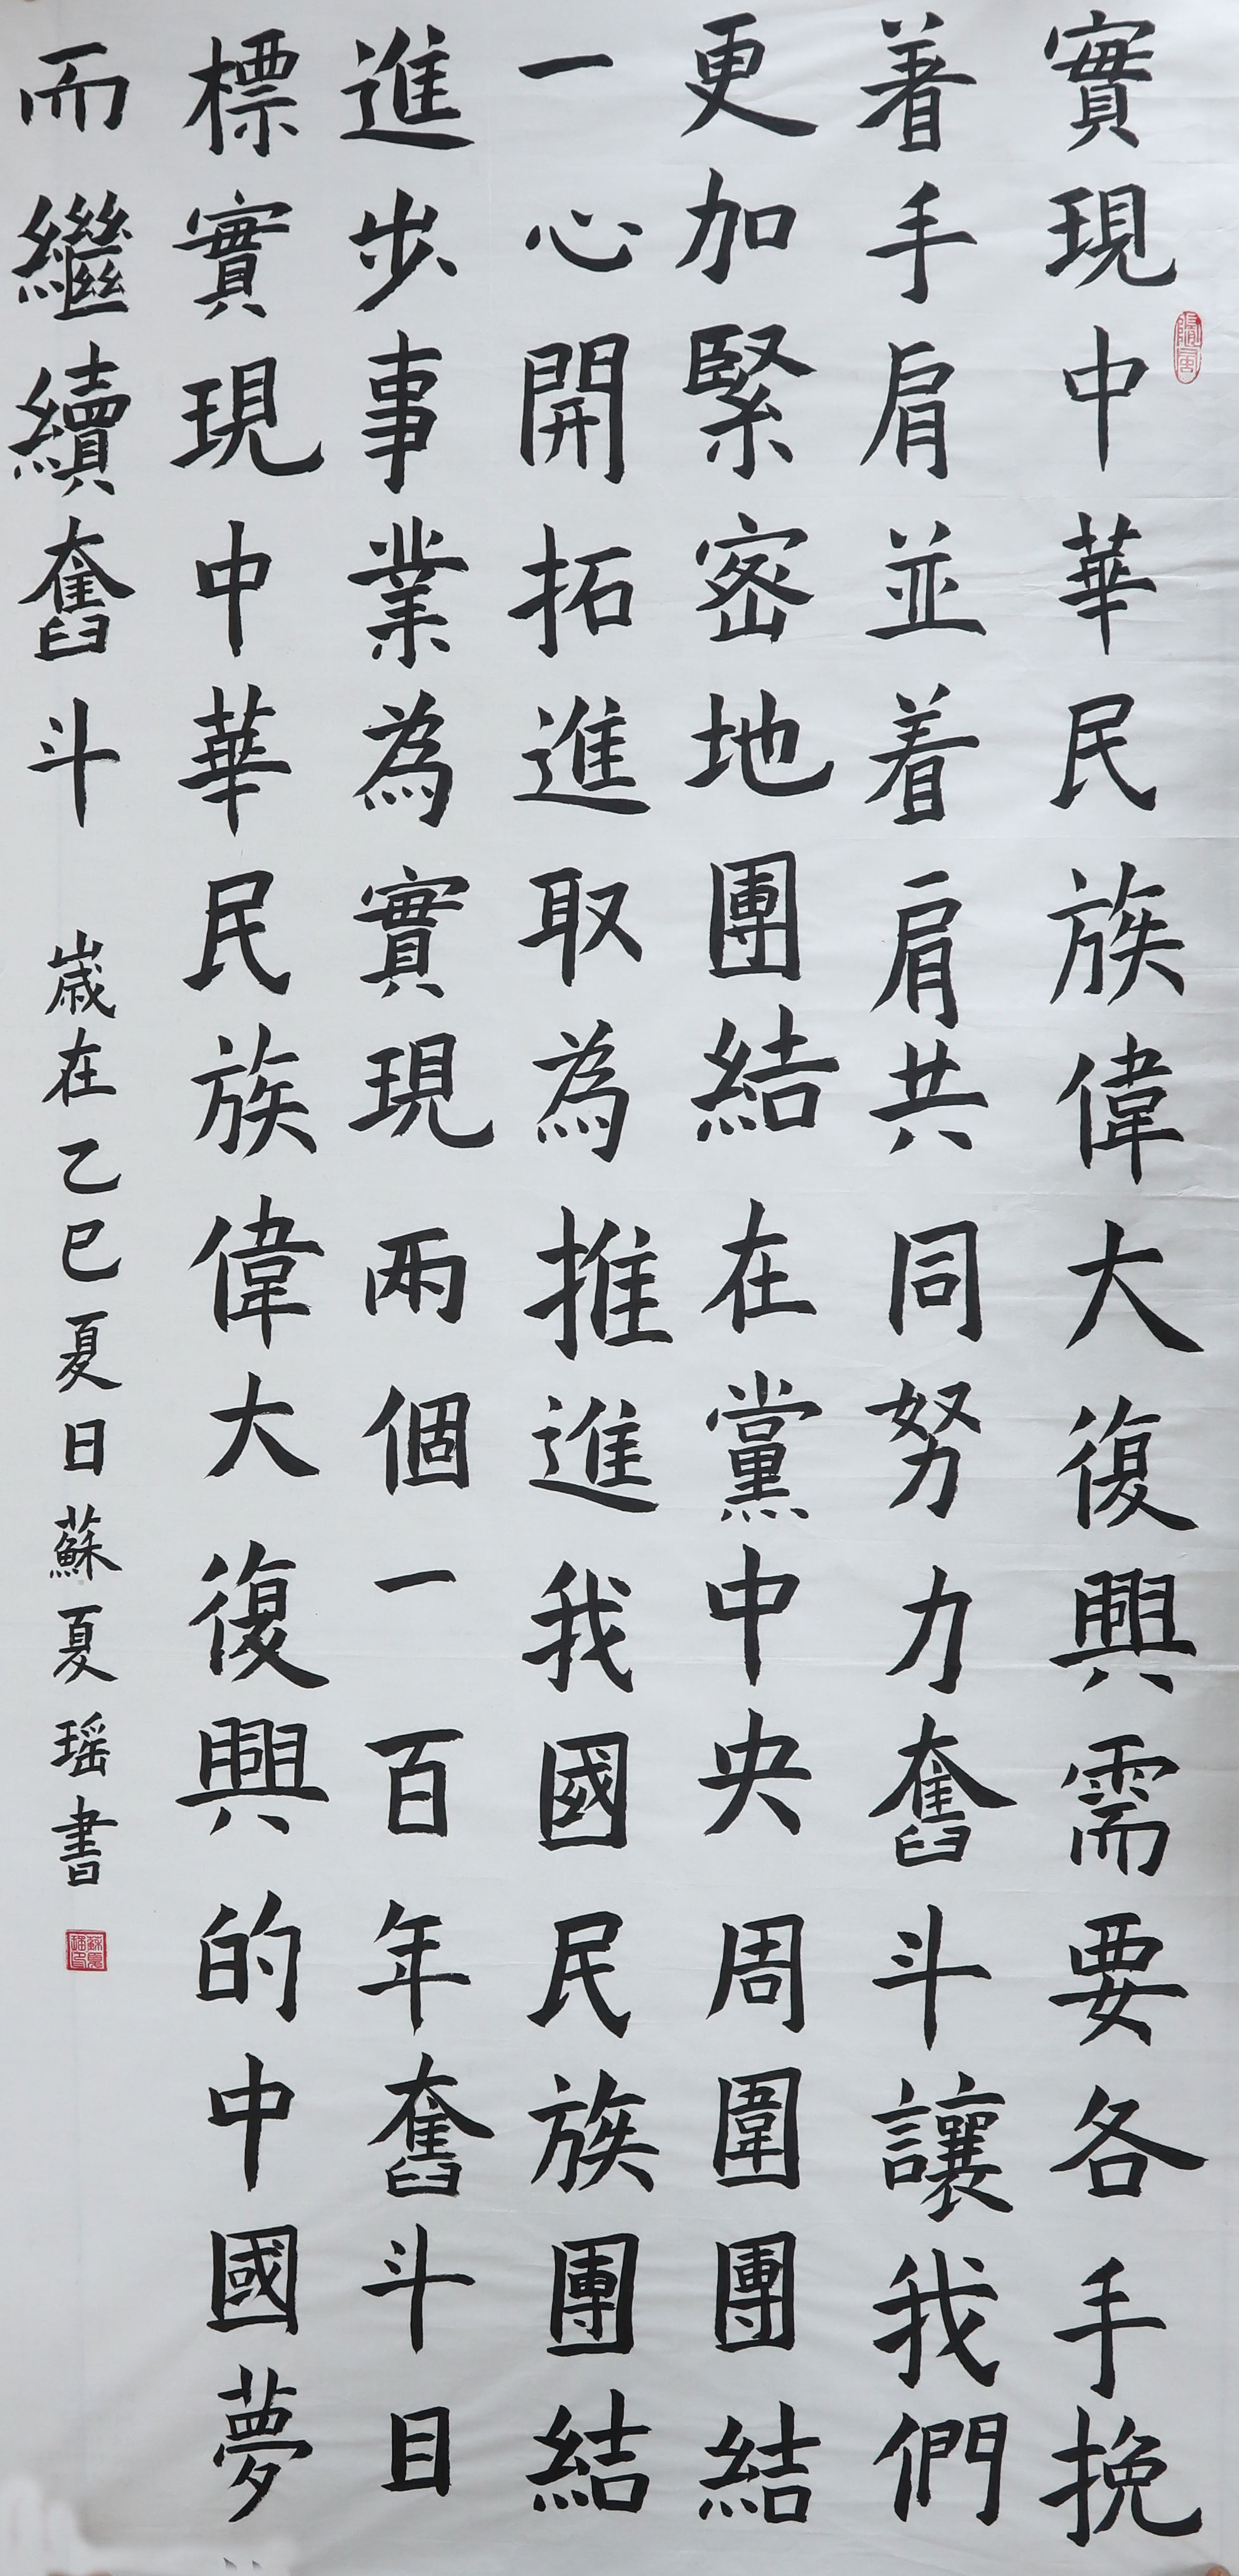 實現中華民族偉大復興需要各手挽
着手肩並着肩共同努力奮斗讓我們
更加緊密地團結在黨中央周圍團結
一心開拓進取為推進我國民族團結
進步事業為實現兩個一百年奮斗目
標實現中華民族偉大復興的中國夢
而繼續奮斗 歲在乙巳夏日蘇夏瑶書